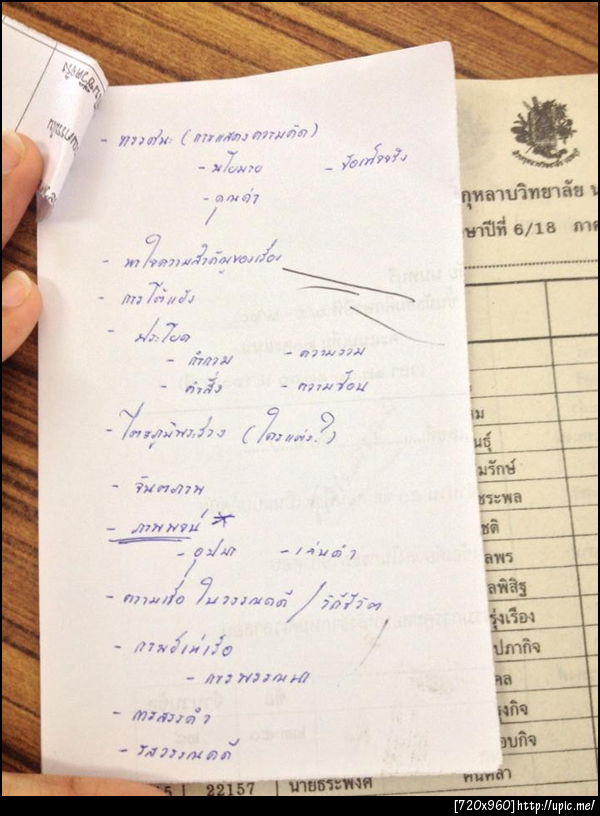 - ทรรศนะ (การแสดงความคิด)
- นโยบาย - ข้อเท็จจริง
- คุณค่า
- หาใจความสำคัญของเรื่อง
- การโต้แย้ง
- ประโยค
- คำถาม - ความรวม
- คำสั่ง - ความซ้อน
- ไตรภูมิพระร่วง (ใครแต่ง?)
- จินตภาพ
- ภาพพจน์ *
- อุปมา - เล่นคำ
- ความเชื่อ ในวรรณคดี / วิถีชีวิต
- กาพย์เห่เรือ
- การพรรณนา
- การสรรคำ
- รสวรรณคดี
กุหลาบวิทยาลัย น
ษาปีที่ 6/18 ภาค
ม
นธุ์
มรักษ์
ชระพล
ชติ
ลพร
ลพิสิฐ
รุ่งเรือง
ปภากิจ
คล
อบกิจ
5 22157 นายธีระพงศ์
[720x960]http://upic.me/